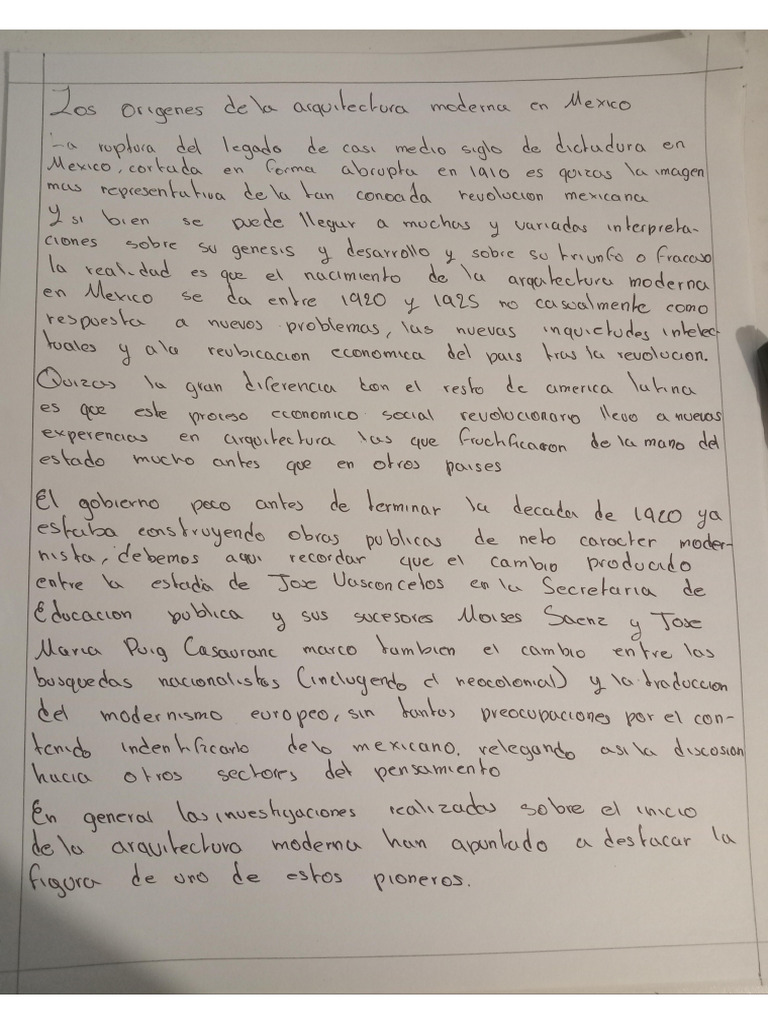 Los origenes de la arquitectura moderna en Mexico
La ruptura del legado de casi medio siglo de dictadura en
Mexico, cortada en forma abrupta en 1910 es quizas la imagen
mas representativa de la tan conocida revolucion mexicana
Y si bien se puede llegar a muchas y variadas interpreta-
ciones sobre su genesis y desarrollo y sobre su triunfo o fracaso
la realidad es que el nacimiento de la arquitectura moderna
en Mexico se da entre 1920 y 1925 no casualmente como
respuesta a nuevos problemas, las nuevas inquietudes intelec-
tuales y a la reubicacion economica del pais tras la revolucion.
Quizas la gran diferencia con el resto de america latina
es que este proceso economico social revolucionario llevo a nuevas
experencias en arquitectura las que fructificaron de la mano del
estado mucho antes que en otros paises
El gobierno poco antes de terminar la decada de 1920 ya
estaba construyendo obras publicas de neto caracter moder-
nista, debemos aqui recordar que el cambio producido
entre la estadia de Jose Vasconcelos en la Secretaria de
Educacion publica y sus sucesores Moises Saenz y Jose
Maria Puig Casauranc marco tambien el cambio entre las
busquedas nacionalistas (incluyendo el neocolonial) y la traduccion
del modernismo europeo, sin tantas preocupaciones por el con-
tenido indentificarlo delo mexicano, relegando asi la discosion
hacia otros sectores del pensamiento
En general las investigaciones realizadas sobre el inicio
de la arquitectura moderna han apuntado a destacar la
figura de uno de estos pioneros.